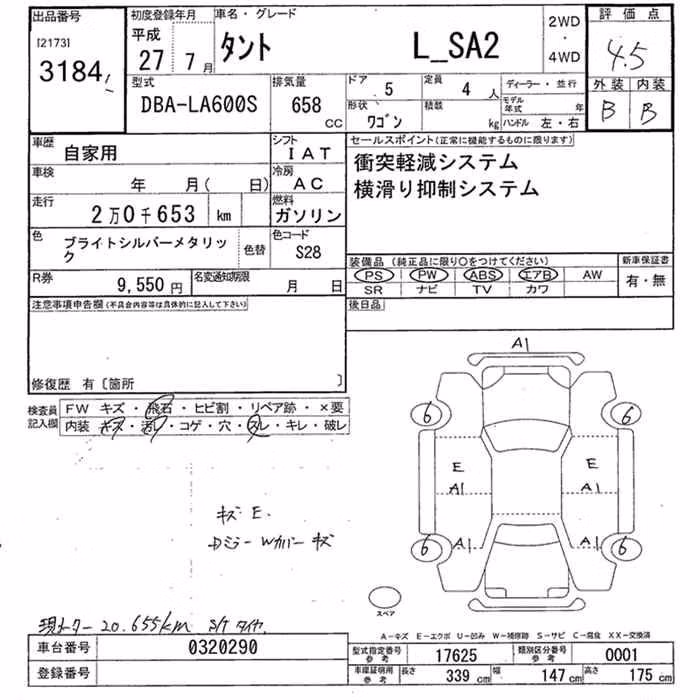 出品番号
[2173]
3184
初度登録年月
平成
27 7月
車名・グレード
タント L_SA2
2WD
・
4WD
評価点
4.5
外装 内装
B B
型式
DBA-LA600S
排気量
658
CC
ドア
5
定員
4 人
形状
ワゴン
積載
kg
ディーラー・並行
モデル年式 年
ハンドル 左・右
車歴
自家用
シフト
IAT
車検
年 月( 日)
冷房
AC
走行
2万0千653 km
燃料
ガソリン
色
ブライトシルバーメタリック
色替
色コード
S28
R券
9,550円
名変通知期限
月 日
セールスポイント(正常に機能するものに限ります)
衝突軽減システム
横滑り抑制システム
装備品 (純正品に限り○をつけてください)
PS PW ABS エアB AW
SR ナビ TV カワ
新車保証書
有・無
後日品
注意事項申告欄(不具合内容等は具体的に記入して下さい)
修復歴 有〔箇所 〕
検査員記入欄
FW キズ・飛石・ヒビ割・リペア跡・×要
内装 キズ・汚レ・コゲ・穴・スレ・キレ・破レ
A1
6 6
E E
A1 A1
6 A1 A1 6
スペア
キズ E.
Wカバー キズ
現メーター 20.655km S/Tタイヤ.
A-キズ E-エクボ U-凹み W-補修跡 S-サビ C-腐食 XX-交換済
車台番号 0320290
登録番号
型式指定番号参考 17625
類別区分番号参考 0001
車庫証明用参考 長さ 339cm 幅 147cm 高さ 175cm